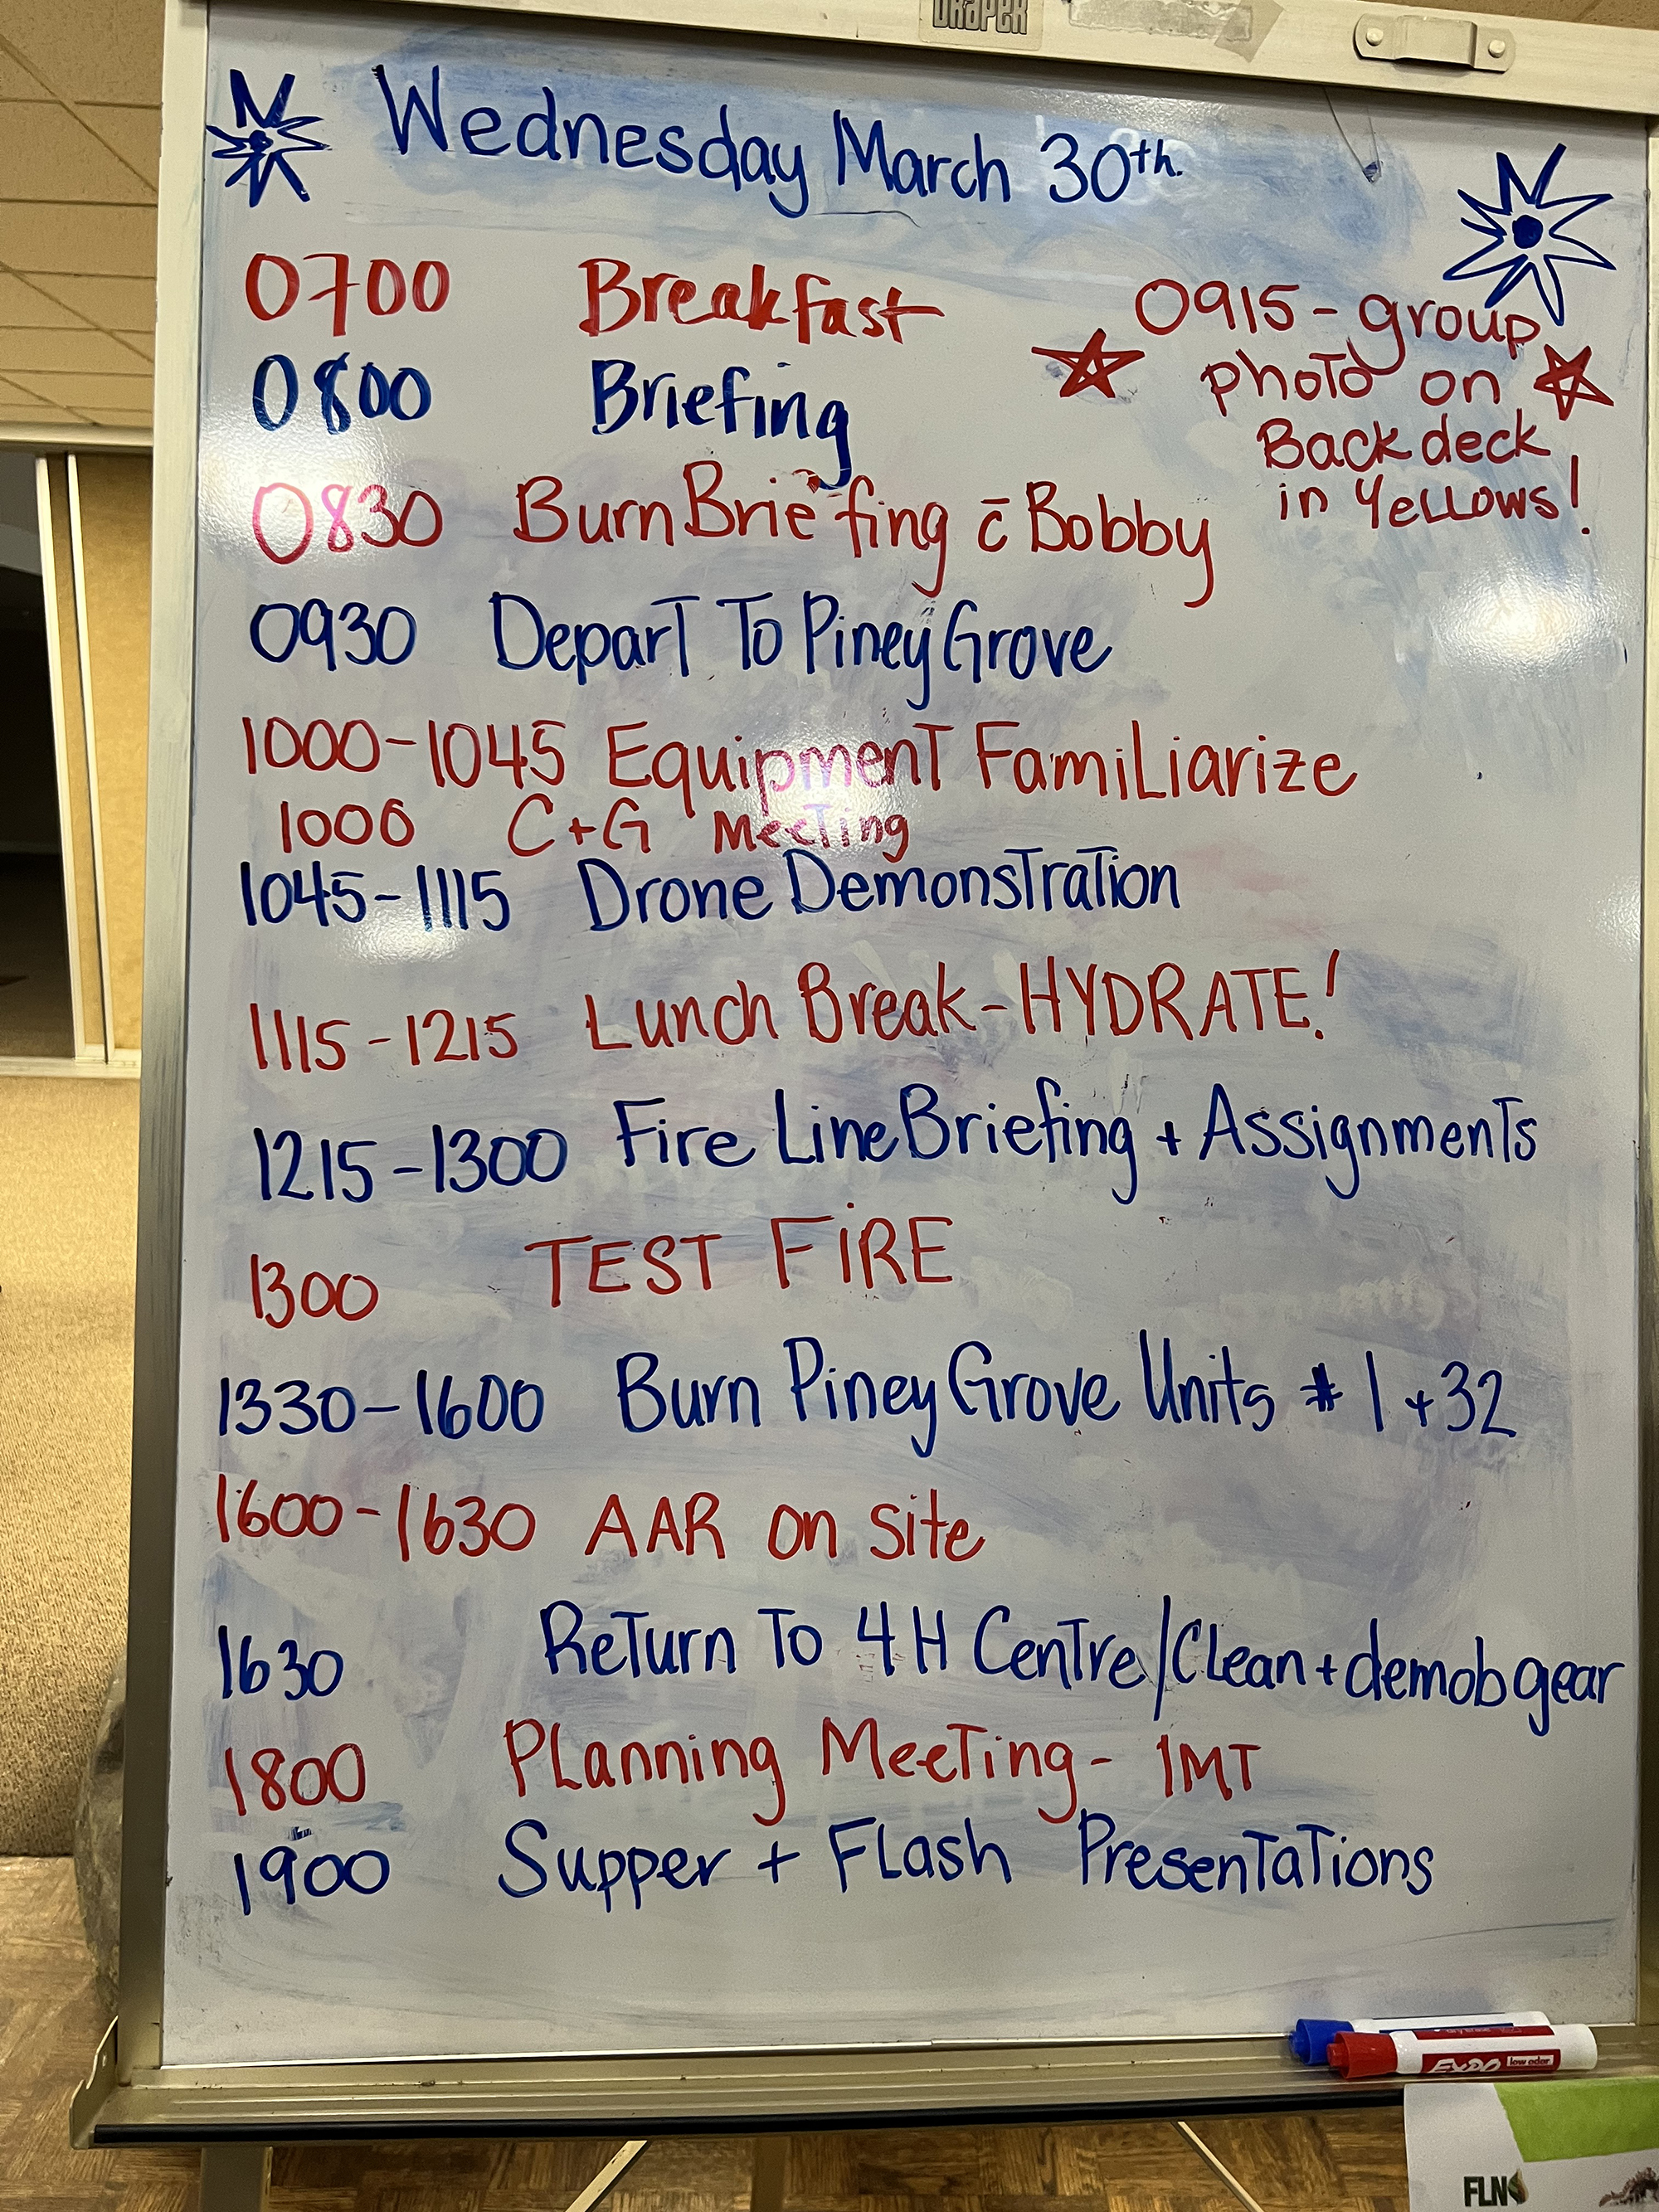 DRAPER
Wednesday March 30th.
0700 Breakfast
0800 Briefing
0915 - group
photo on
Back deck
in Yellows!
0830 Burn Briefing c̄ Bobby
0930 Depart To Piney Grove
1000-1045 Equipment Familiarize
1000 C+G Meeting
1045-1115 Drone Demonstration
1115-1215 Lunch Break-HYDRATE!
1215-1300 Fire Line Briefing + Assignments
1300 TEST FiRE
1330-1600 Burn Piney Grove Units # 1 + 32
1600-1630 AAR on site
1630 Return To 4H Centre/Clean + demob gear
1800 Planning Meeting - IMT
1900 Supper + Flash Presentations
EXPO low odor
FLN